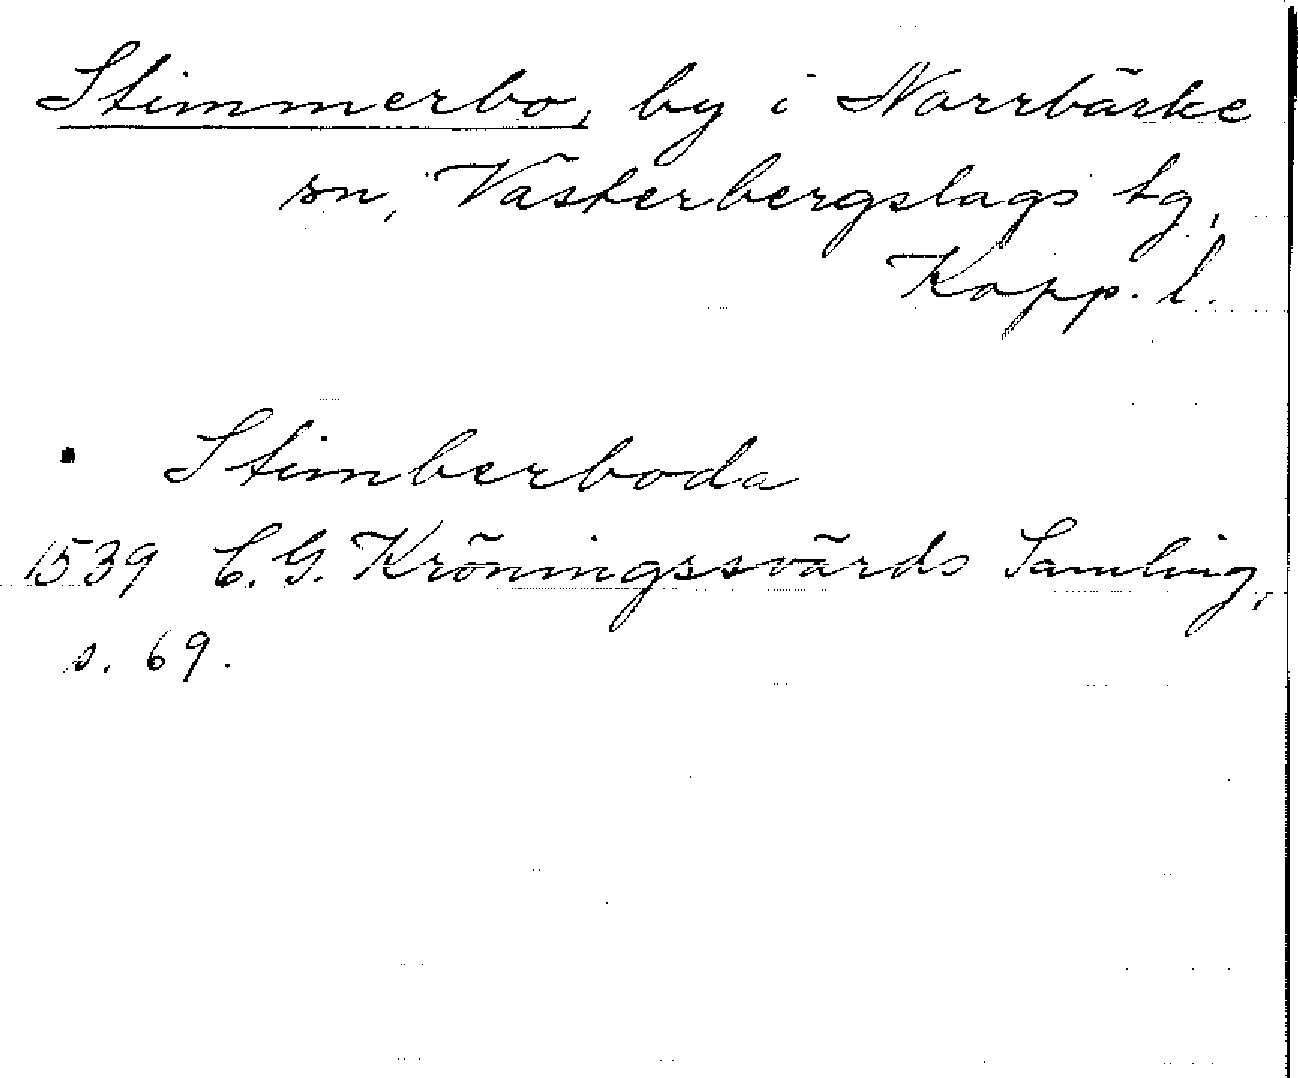 Stimmerbo, by i Norrbärke
sn, Västerbergslags tg,
Kopp. l.
Stimberboda
1539 C. G. Kröningssvärds Samling,
s. 69.